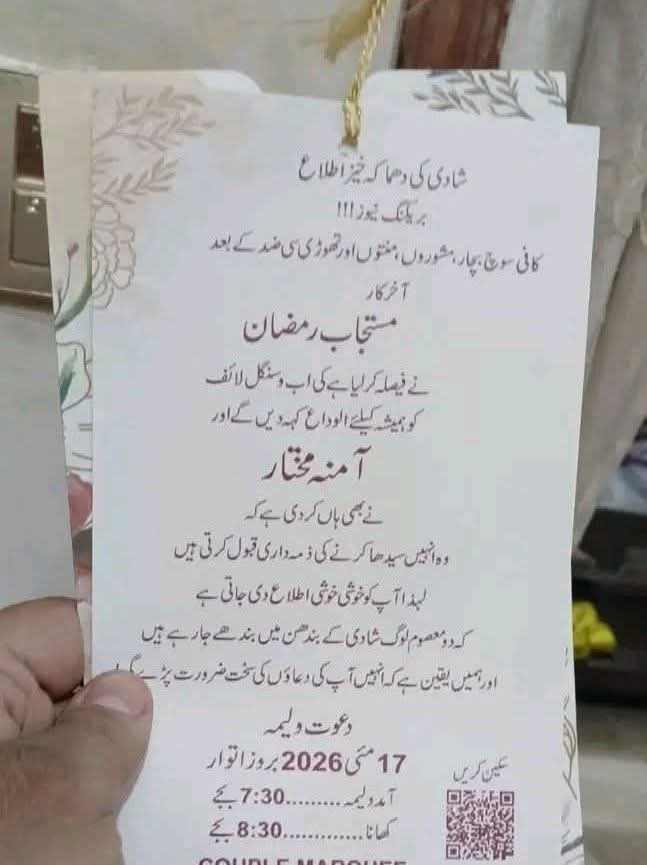 شادی کی دھماکہ خیز اطلاع
بریکنگ نیوز!!!
کافی سوچ بچار، مشوروں، منتوں اور تھوڑی سی ضد کے بعد
آخر کار
مستجاب رمضان
نے فیصلہ کر لیا ہے کی اب وہ سنگل لائف
کو ہمیشہ کیلئے الوداع کہہ دیں گے اور
آمنہ مختار
نے بھی ہاں کر دی ہے کہ
وہ انہیں سیدھا کرنے کی ذمہ داری قبول کرتی ہیں
لہذا آپ کو خوشی خوشی اطلاع دی جاتی ہے
کہ دو معصوم لوگ شادی کے بندھن میں بندھے جا رہے ہیں
اور ہمیں یقین ہے کہ انہیں آپ کی دعاؤں کی سخت ضرورت پڑے گی!
دعوت ولیمہ
17 مئی 2026 بروز اتوار
سکین کریں
آمد ولیمہ.........7:30 بجے
کھانا.............8:30 بجے
COUPLE MARQUEE